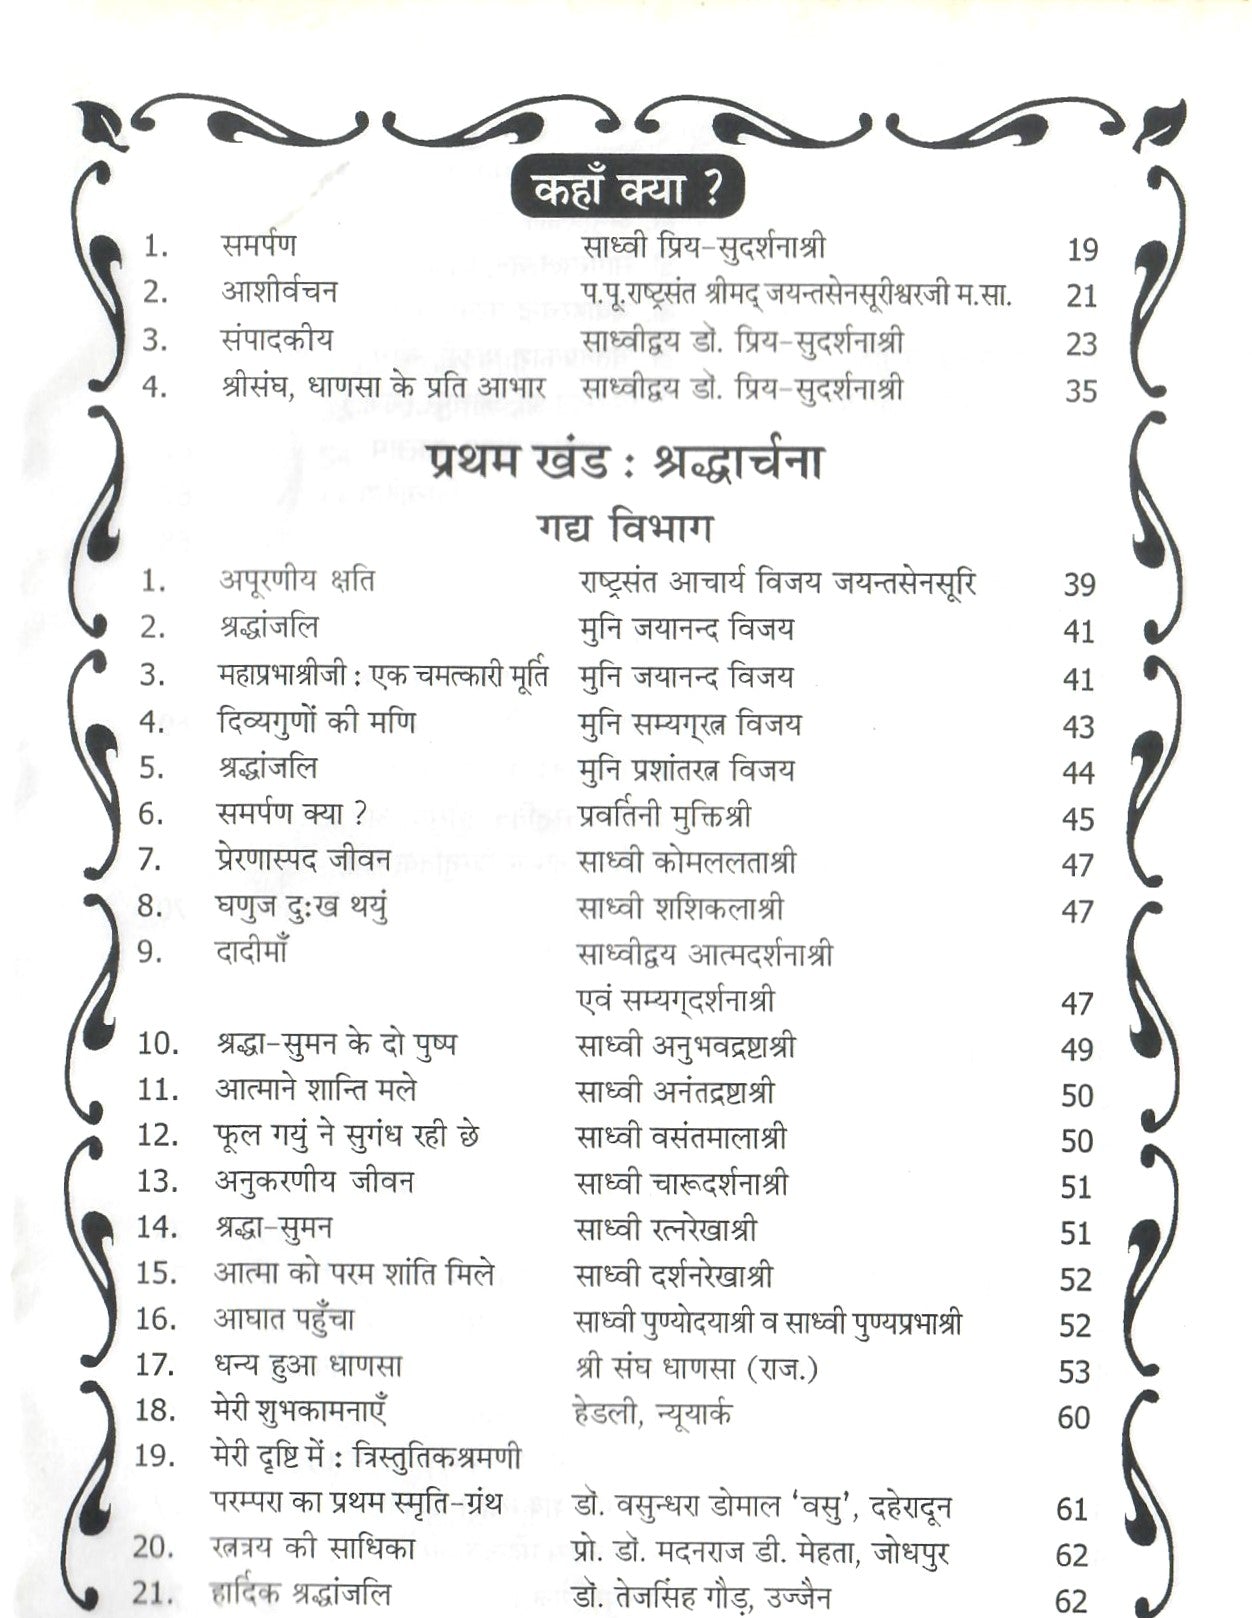 कहाँ क्या ?
1. समर्पण साध्वी प्रिय-सुदर्शनाश्री 19
2. आशीर्वचन प.पू.राष्ट्रसंत श्रीमद् जयन्तसेनसूरीश्वरजी म.सा. 21
3. संपादकीय साध्वीद्वय डॉ. प्रिय-सुदर्शनाश्री 23
4. श्रीसंघ, धाणसा के प्रति आभार साध्वीद्वय डॉ. प्रिय-सुदर्शनाश्री 35
प्रथम खंड : श्रद्धार्चना
गद्य विभाग
1. अपूरणीय क्षति राष्ट्रसंत आचार्य विजय जयन्तसेनसूरि 39
2. श्रद्धांजलि मुनि जयानन्द विजय 41
3. महाप्रभाश्रीजी : एक चमत्कारी मूर्ति मुनि जयानन्द विजय 41
4. दिव्यगुणों की मणि मुनि सम्यग्‌रत्न विजय 43
5. श्रद्धांजलि मुनि प्रशांतरत्न विजय 44
6. समर्पण क्या ? प्रवर्तिनी मुक्तिश्री 45
7. प्रेरणास्पद जीवन साध्वी कोमललताश्री 47
8. घणुज दुःख थयुं साध्वी शशिकलाश्री 47
9. दादीमाँ साध्वीद्वय आत्मदर्शनाश्री
एवं सम्यग्‌दर्शनाश्री 47
10. श्रद्धा-सुमन के दो पुष्प साध्वी अनुभवद्रष्टाश्री 49
11. आत्माने शान्ति मले साध्वी अनंतद्रष्टाश्री 50
12. फूल गयुं ने सुगंध रही छे साध्वी वसंतमालाश्री 50
13. अनुकरणीय जीवन साध्वी चारूदर्शनाश्री 51
14. श्रद्धा-सुमन साध्वी रत्नरेखाश्री 51
15. आत्मा को परम शांति मिले साध्वी दर्शनरेखाश्री 52
16. आघात पहुँचा साध्वी पुण्योदयाश्री व साध्वी पुण्यप्रभाश्री 52
17. धन्य हुआ धाणसा श्री संघ धाणसा (राज.) 53
18. मेरी शुभकामनाएँ हेडली, न्यूयार्क 60
19. मेरी दृष्टि में : त्रिस्तुतिकश्रमणी
परम्परा का प्रथम स्मृति-ग्रंथ डॉ. वसुन्धरा डोमाल ‘वसु’, दहेरादून 61
20. रत्नत्रय की साधिका प्रो. डॉ. मदनराज डी. मेहता, जोधपुर 62
21. हार्दिक श्रद्धांजलि डॉ. तेजसिंह गौड़, उज्जैन 62